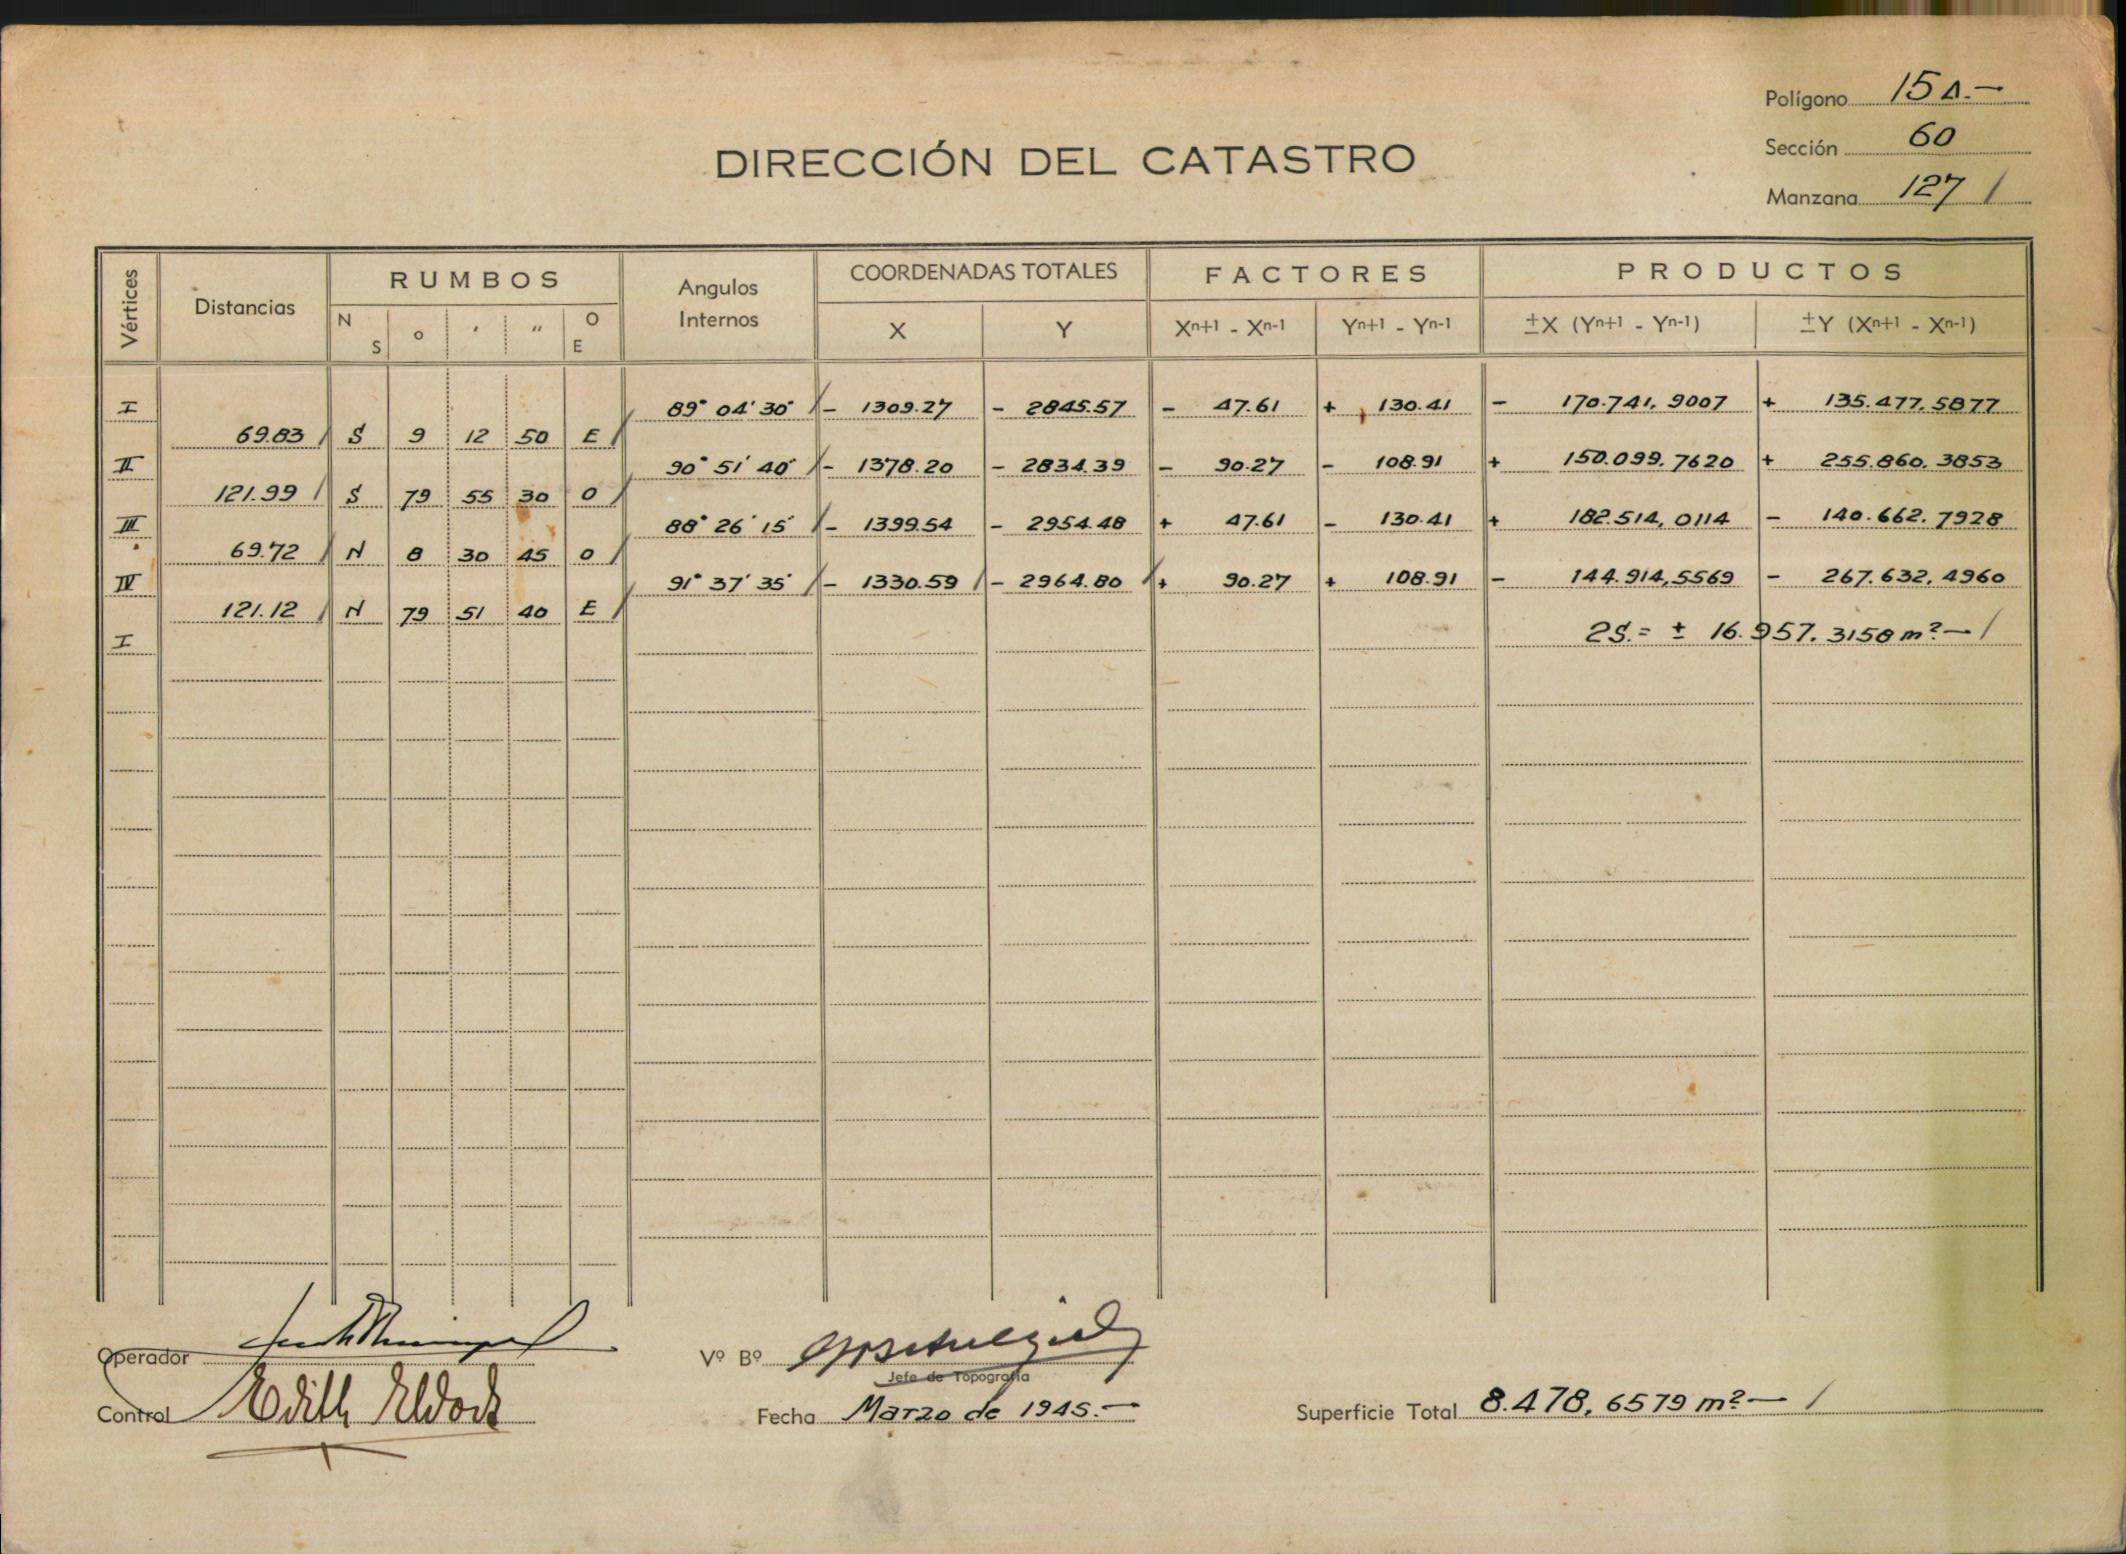 Polígono 15 A.—
DIRECCIÓN DEL CATASTRO
Sección 60
Manzana 127 /
Vértices Distancias RUMBOS Angulos Internos COORDENADAS TOTALES FACTORES PRODUCTOS
N S ° ′ ″ O E X Y Xn+1 - Xn-1 Yn+1 - Yn-1 ±X (Yn+1 - Yn-1) ±Y (Xn+1 - Xn-1)
I 89° 04' 30" / - 1309.27 - 2845.57 - 47.61 + 130.41 - 170.741,9007 + 135.477,5877
69.83 / S 9 12 50 E /
II 90° 51' 40" / - 1378.20 - 2834.39 - 90.27 - 108.91 + 150.099,7620 + 255.860,3853
121.99 / S 79 55 30 O /
III 88° 26' 15" / - 1399.54 - 2954.48 + 47.61 - 130.41 + 182.514,0114 - 140.662,7928
69.72 / N 8 30 45 O /
IV 91° 37' 35" / - 1330.59 / - 2964.80 / + 90.27 + 108.91 - 144.914,5569 - 267.632,4960
121.12 / N 79 51 40 E /
I 2S.= ± 16.957,3158 m²— /
Operador
Vº Bº
Jefe de Topografía
Control Edith
Fecha Marzo de 1945.—
Superficie Total 8.478,6579 m²— /